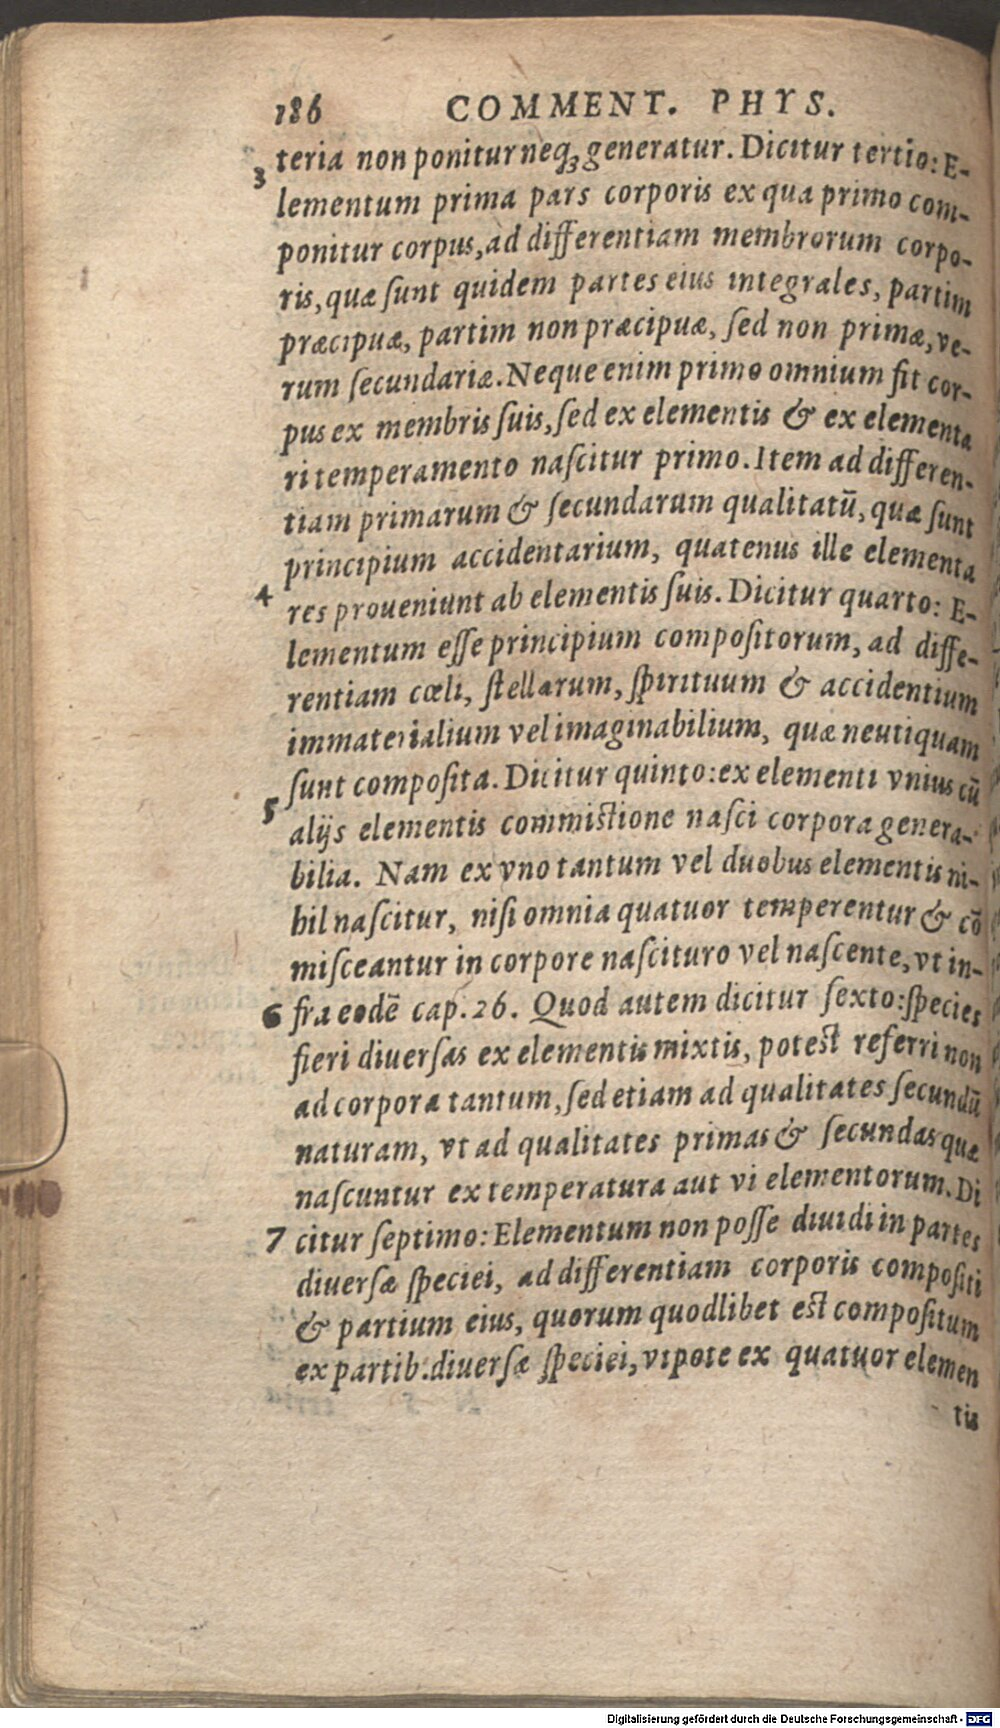 186 COMMENT. PHYS.
teria non ponitur neqꝫ generatur. Dicitur tertio: E-
3
lementum prima pars corporis ex qua primo com-
ponitur corpus, ad differentiam membrorum corpo-
ris, quæ sunt quidem partes eius integrales, partim
præcipuæ, partim non præcipuæ, sed non primæ, ve-
rum secundariæ. Neque enim primo omnium fit cor-
pus ex membris suis, sed ex elementis & ex elementa
ri temperamento nascitur primo. Item ad differen-
tiam primarum & secundarum qualitatū, quæ sunt
principium accidentarium, quatenus ille elementa
4 res proueniunt ab elementis suis. Dicitur quarto: E-
lementum esse principium compositorum, ad diffe-
rentiam cœli, stellarum, spirituum & accidentium
immaterialium vel imaginabilium, quæ neutiquam
sunt composita. Dicitur quinto: ex elementi vnius cū
5 alijs elementis commistione nasci corpora genera-
bilia. Nam ex vno tantum vel duobus elementis ni-
hil nascitur, nisi omnia quatuor temperentur & cō
misceantur in corpore nascituro vel nascente, vt in-
6 fra eodē cap. 26. Quod autem dicitur sexto: species
fieri diuersas ex elementis mixtis, potest referri non
ad corpora tantum, sed etiam ad qualitates secundū
naturam, vt ad qualitates primas & secundas quæ
nascuntur ex temperatura aut vi elementorum. Di
7 citur septimo: Elementum non posse diuidi in partes
diuersæ speciei, ad differentiam corporis compositi
& partium eius, quorum quodlibet est compositum
ex partib. diuersæ speciei, vtpote ex quatuor elemen
tis
Digitalisierung gefördert durch die Deutsche Forschungsgemeinschaft - DFG